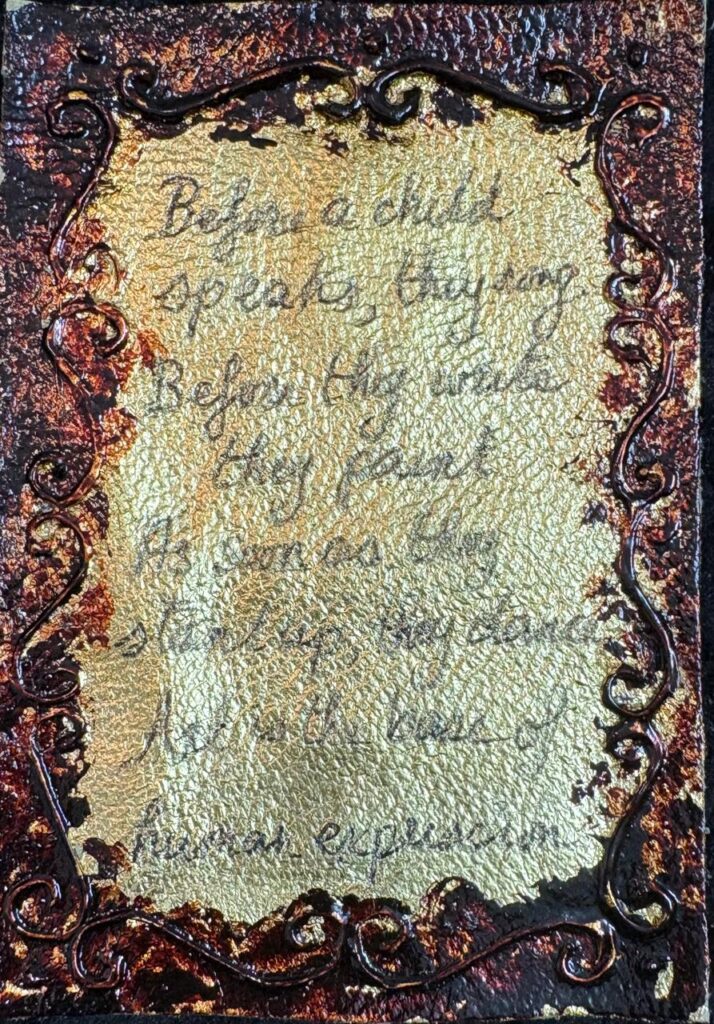 Before a child
speaks, they song
Before they write
they paint
As soon as they
stand up, they dance
Art is the base of
human expression